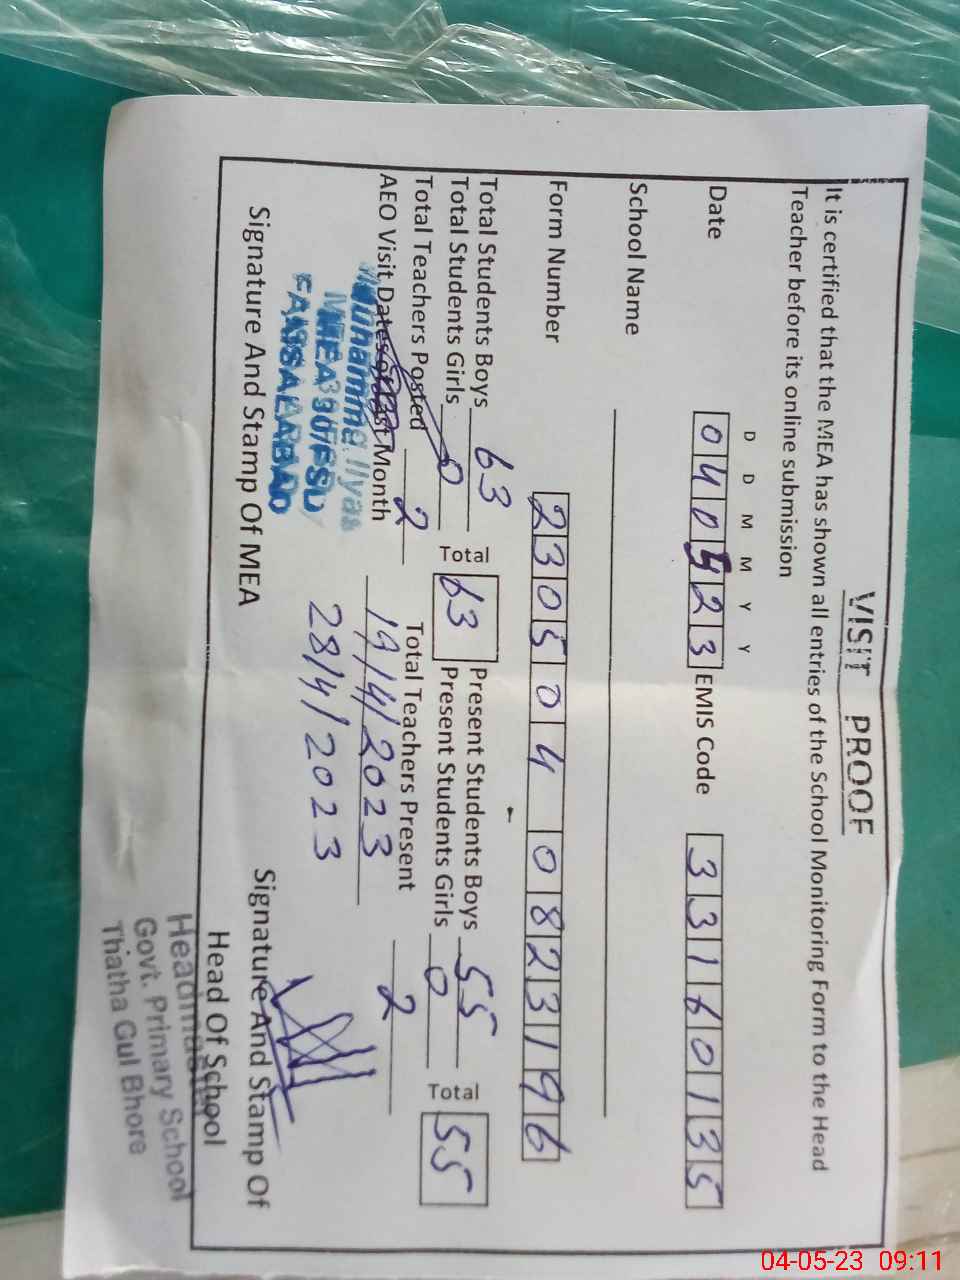 VISIT PROOF
It is certified that the MEA has shown all entries of the School Monitoring Form to the Head
Teacher before its online submission
D D M M Y Y
Date 040523 EMIS Code 33160135
School Name
Form Number 230504 - 0823196
Total Students Boys 63 Total 63 Present Students Boys 55 Total 55
Total Students Girls 0 Present Students Girls 0
Total Teachers Posted 2 Total Teachers Present 2
AEO Visit Dates of Last Month 19/4/2023
28/4/2023
Muhammad Ilyas
MEA 390/FSD
FAISALABAD
Signature And Stamp Of MEA
Signature And Stamp Of
Head Of School
Headmaster
Govt. Primary School
Thatha Gul Bhore
04-05-23 09:11